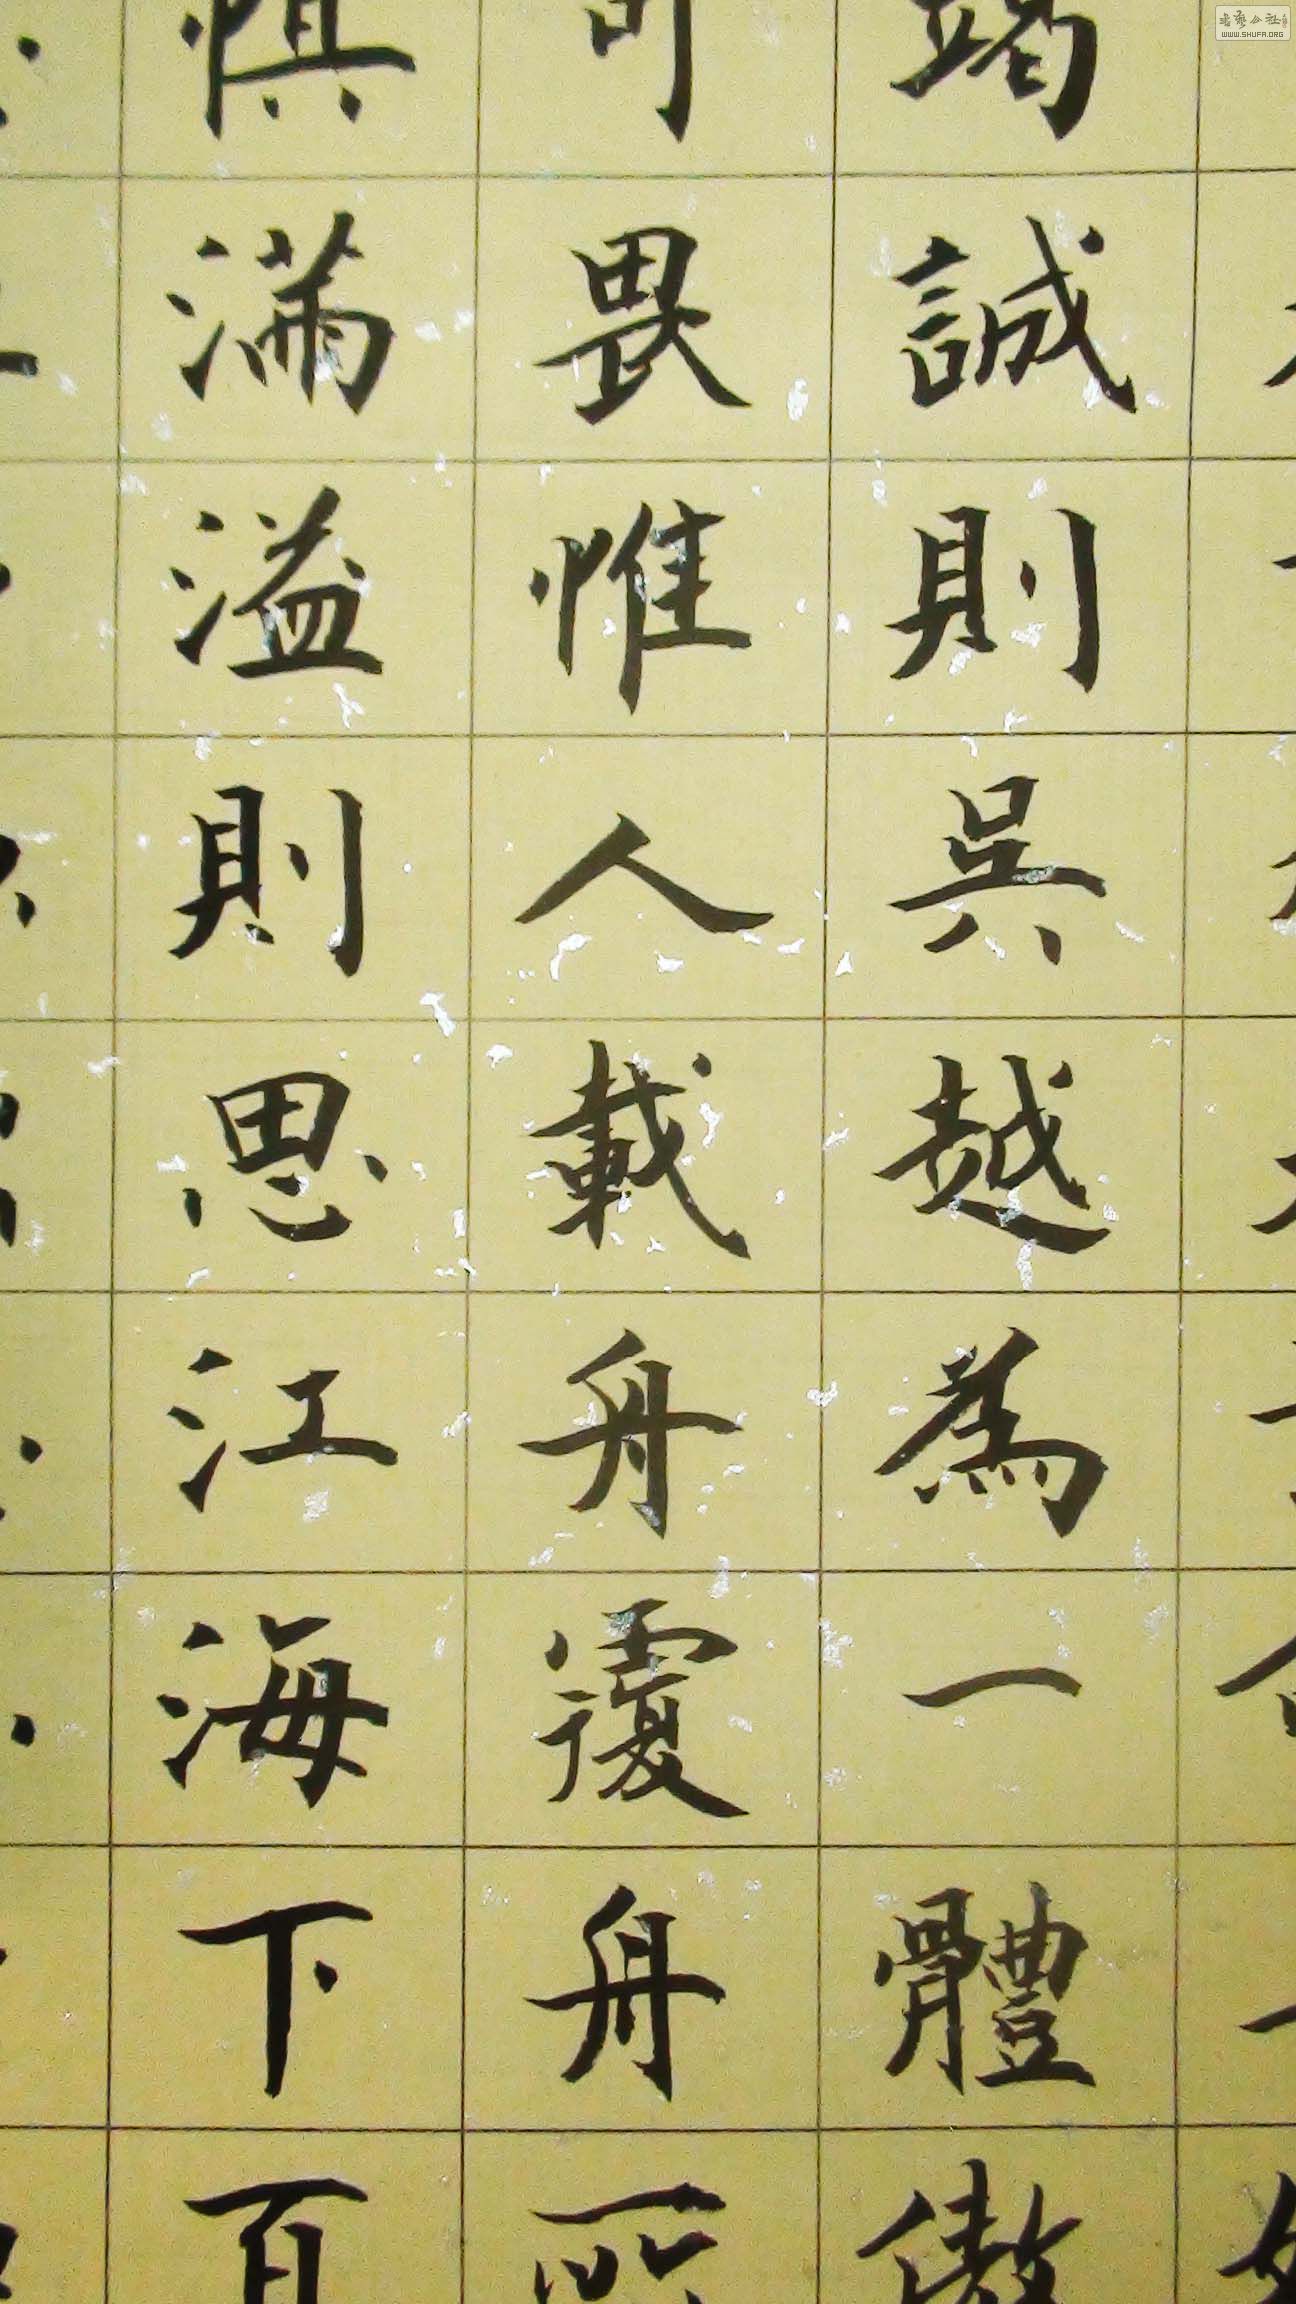 竭誠則吳越為一體傲
可畏惟人載舟覆舟所
懼滿溢則思江海下百
書藝公社
WWW.SHUFA.ORG